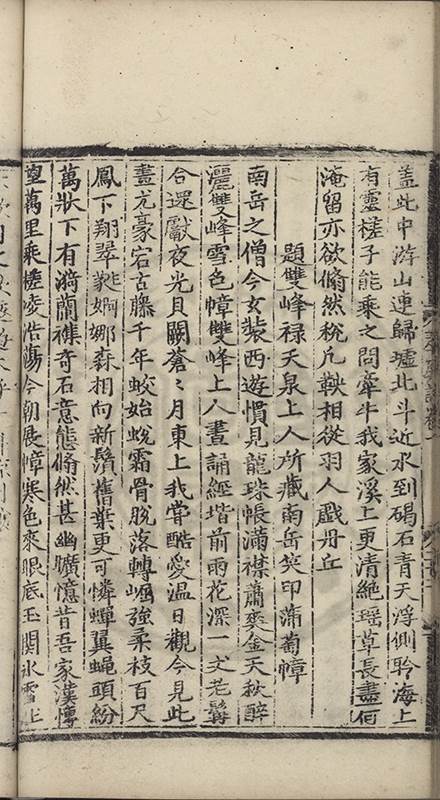 盖此中游山連歸墟北斗近水到碣石青天浮側聆海上
有靈槎子能乘之問牽牛我家溪上更清絶瑶草長盡何
淹留亦欲翛然稅凡鞅相從羽人戲丹丘
題雙峰禄天泉上人所藏南岳笑印蒲萄幛
南岳之僧今玄裝西遊慣見龍珠帳滿襟蕭爽金天秋醉
灑雙峰雪色幛雙峰上人晝誦經堦前雨花深一丈老髯
合還獻夜光貝闕蒼〻月東上我甞酷愛温日觀今見此
畫尤豪宕古藤千年蛟始蛻霜骨脱落轉崛強柔枝百尺
鳳下翔翠㲯婀娜森相向新鬚舊葉更可憐蟬翼蝇頭紛
萬狀下有漪蘭襍奇石意態翛然甚幽曠憶昔吾家漢慱
望萬里乘槎凌浩蕩今朝展幛寒色來眼底玉関氷雪上